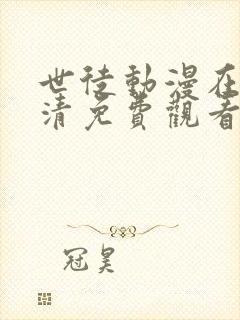 世徒動漫在
清免費觀看
冠昊